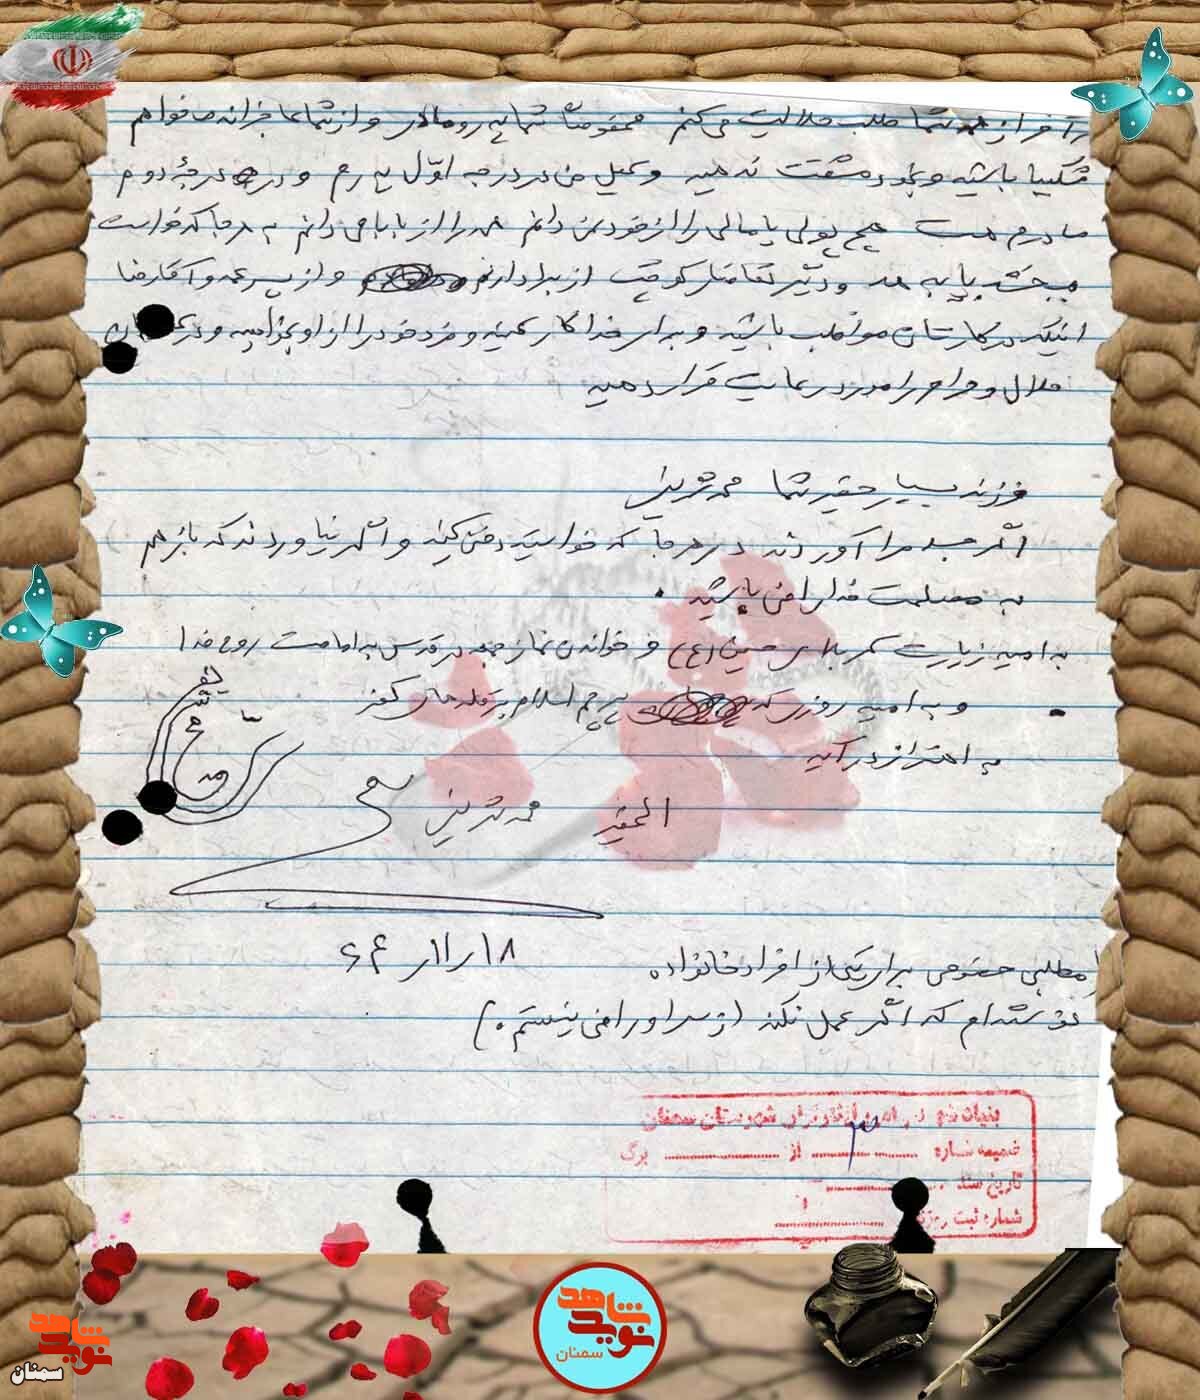 در آخر از همه شما طلب حلالیت می‌کنم مخصوصاً شما پدر و مادر و از شما عاجزانه می‌خواهم
شکیبا باشید و بخود مشقت ندهید وکیل من در درجه اوّل پدرم و در درجهٔ دوم
مادرم هست هیچ پولی یا مالی را از خود نمی‌دانم همه را از بابا می‌دانم به هر جا که خواست
ببخشد یا بدهد و دیگر تقاضای کوچک از برادرانم و از پسر عمه و آقا رضا
اینکه در کارتان مواظب باشید و برای خدا کار کنید و مزد خود را از او بخواهید و در
حلال و حرام را مورد رعایت قرار دهید
فرزند بسیار حقیر شما محمد
اگر جسد مرا آوردند در هر جا که خواستید دفن کنید و اگر نیاوردند که باز هم
به مصلحت خدا راضی باشید .
به امید زیارت کربلای حسین (ع) و خواندن نماز جمعه در قدس به امامت روح خدا
و به امید روزی که پرچم اسلام بر قله‌های کفر
به اهتزاز درآید
الحقیر محمد
۶۴/۱۱/۱۸
مطلبی خصوصی برای یکی از افراد خانواده
نوشته‌ام که اگر عمل نکند (از او راضی نیستم.)
بنیاد شهید شهرستان سمنان
ضمیمه شماره از برگ
تاریخ سند
شماره ثبت
نوید شاهد
سمنان
نوید شاهد
سمنان